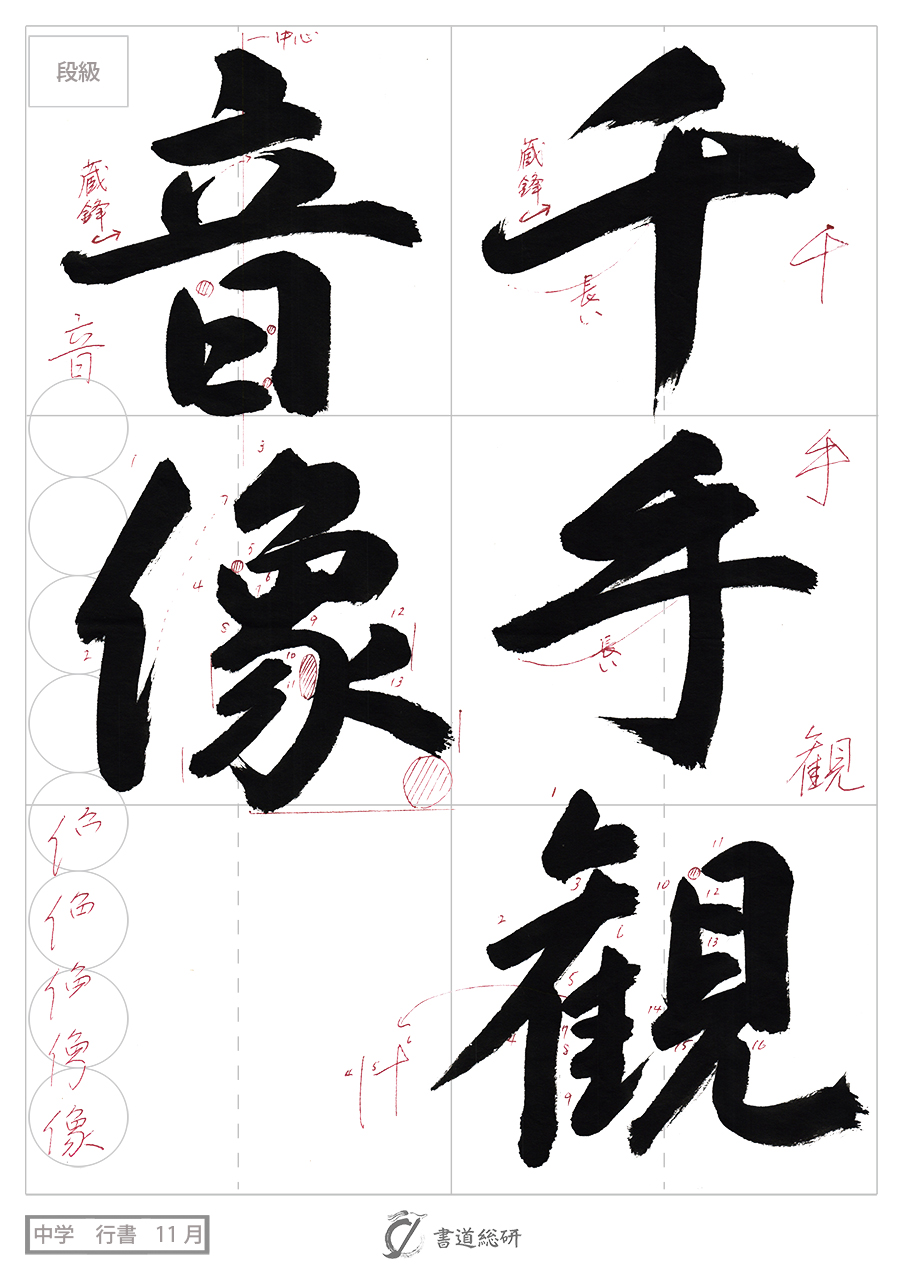 千手観
音像
段級
中心
蔵鋒
蔵鋒
長い
長い
千
手
観
音
像
中学 行書 11月
書道総研